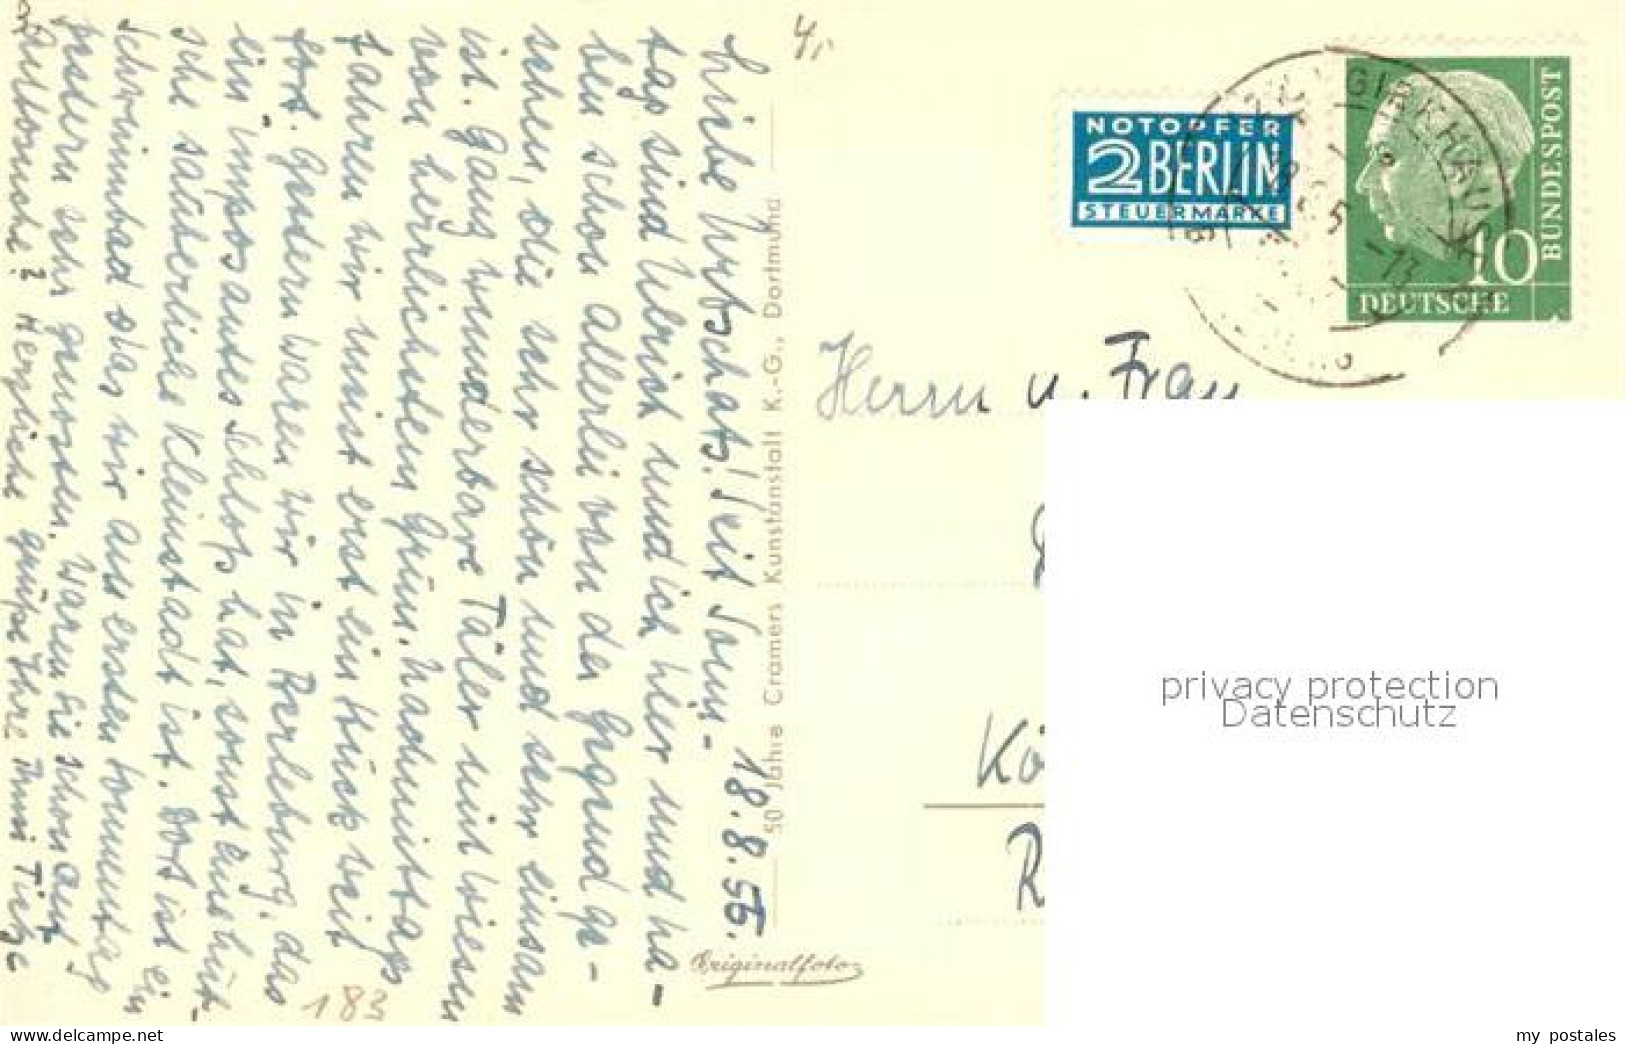 18.8.55.
Liebe Urbschats! Seit Sonn-
tag sind Ulrich und ich hier und ha-
ben schon allerlei von der Gegend ge-
sehen, die sehr schön und sehr einsam
ist. Ganz wunderbare Täler mit Wiesen
von herrlichstem Grün. Nachmittags
fahren wir meist erst ein Stück weit
fort. Gestern waren wir in Berleburg, das
ein imposantes Schloß hat, sonst eine hüb-
sche säuberliche Kleinstadt ist. Dort ist ein
Schwimmbad das wir am ersten Sonnentag
gestern sehr genossen. Waren Sie schon auf
Herzliche Grüße Ihre
50 Jahre Cramers Kunstanstalt K.-G., Dortmund
Originalfoto
183
4,-
NOTOPFER
2 BERLIN
STEUERMARKE
GIRKHAUSEN
-13
10
DEUTSCHE
BUNDESPOST
Herrn u. Frau
Kö
R
privacy protection
Datenschutz
www.delcampe.net
my_postales